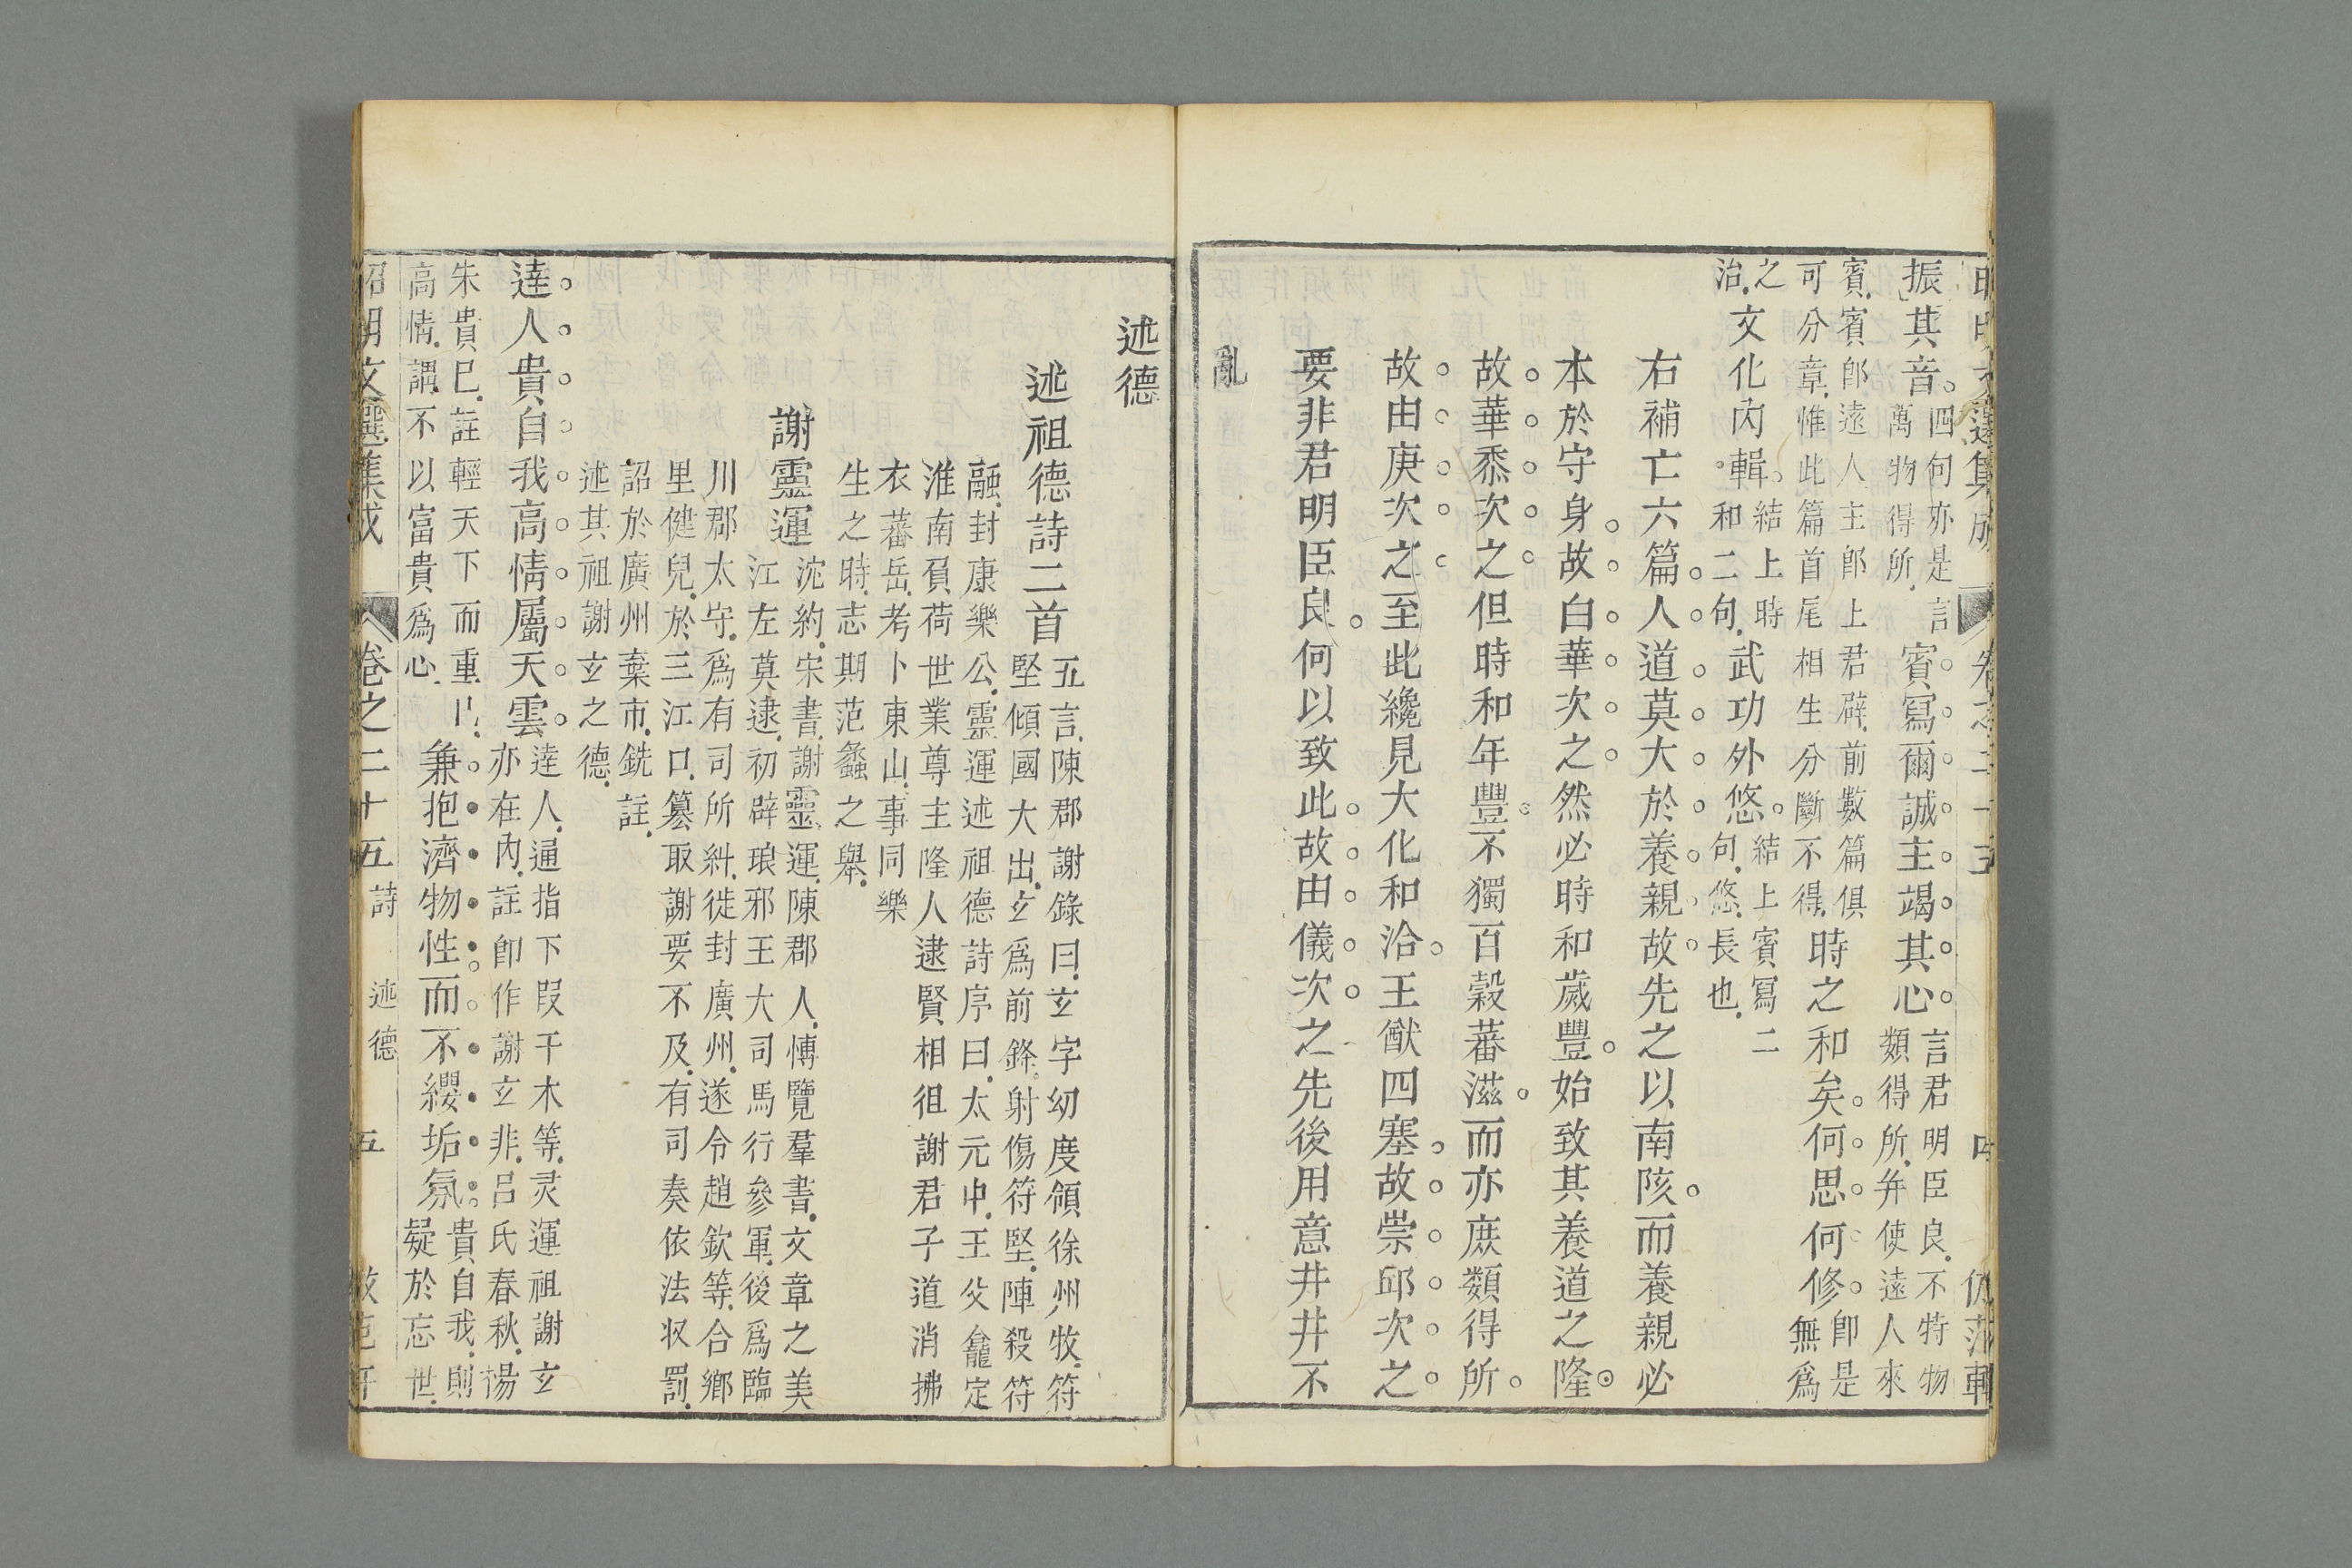 昭明文選集成　卷之二十五　仿范軒
振其音。四句亦是言
萬物得所。賓寫爾誠主竭其心。言君明臣良不特物
類得所并使遠人來
賓賓卽遠人主卽上君辟前數篇俱
可分章惟此篇首尾相生分斷不得時之和矣何思何修卽是
無爲
之
治文化內輯。結上時
和二句武功外悠。結上賓寫二
句悠長也
右補亡六篇人道莫大於養親故先之以南陔而養親必
本於守身故白華次之然必時和歲豐始致其養道之隆
故華黍次之但時和年豐不獨百穀蕃滋而亦庶類得所
故由庚次之至此纔見大化和洽王猷四塞故崇邱次之
要非君明臣良何以致此故由儀次之先後用意井井不
亂
述德
述祖德詩二首五言陳郡謝錄曰玄字幼度領徐州牧符
堅傾國大出玄爲前鋒射傷符堅陣殺符
融封康樂公靈運述祖德詩序曰太元中王父龕定
淮南負荷世業尊主隆人逮賢相徂謝君子道消拂
衣蕃岳考卜東山事同樂
生之時志期范蠡之舉
謝靈運沈約宋書謝靈運陳郡人博覽羣書文章之美
江左莫逮初辟琅邪王大司馬行參軍後爲臨
川郡太守爲有司所糾徙封廣州遂令趙欽等合鄉
里健兒於三江口篡取謝要不及有司奏依法收罰
詔於廣州棄市銑註
述其祖謝玄之德
達人貴自我高情屬天雲達人通指下叚干木等灵運祖謝玄
亦在內註卽作謝玄非呂氏春秋楊
朱貴已註輕天下而重已
高情謂不以富貴爲心兼抱濟物性而不纓垢氛貴自我則
疑於忘世
昭明文選集成　卷之二十五　詩　述德　五　仿范軒